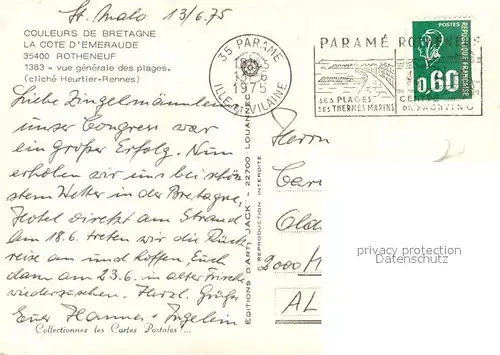 St. Malo 13/6.75
COULEURS DE BRETAGNE
LA COTE D'EMERAUDE
35400 ROTHENEUF
1383 - vue générale des plages.
(cliché Heurtier-Rennes)
Liebe Zingelmännlein
unser Congress war
ein großer Erfolg. Nun
erholen wir uns bei schön-
stem Wetter in der Bretagne,
Hotel direkt am Strand
am 18.6. treten wir die Rück-
reise an und hoffen, Euch
dann am 23.6. in alter Frische
wiederzusehen. Herzl. Grüße
Euer Hannes + Ingelein
Collectionnez les Cartes Postales ...
EDITIONS D'ART "JACK" - 22700 - LOUANNEC
REPRODUCTION INTERDITE
35 PARAMÉ
1975
ILLE-ET-VILAINE
PARAMÉ ROTHENEUF
SES PLAGES
SES THERMES MARINS
CENTRE
DE YACHTING
POSTES
0,60
REPUBLIQUE FRANÇAISE
Herrn
2000 H
AL
privacy protection
Datenschutz